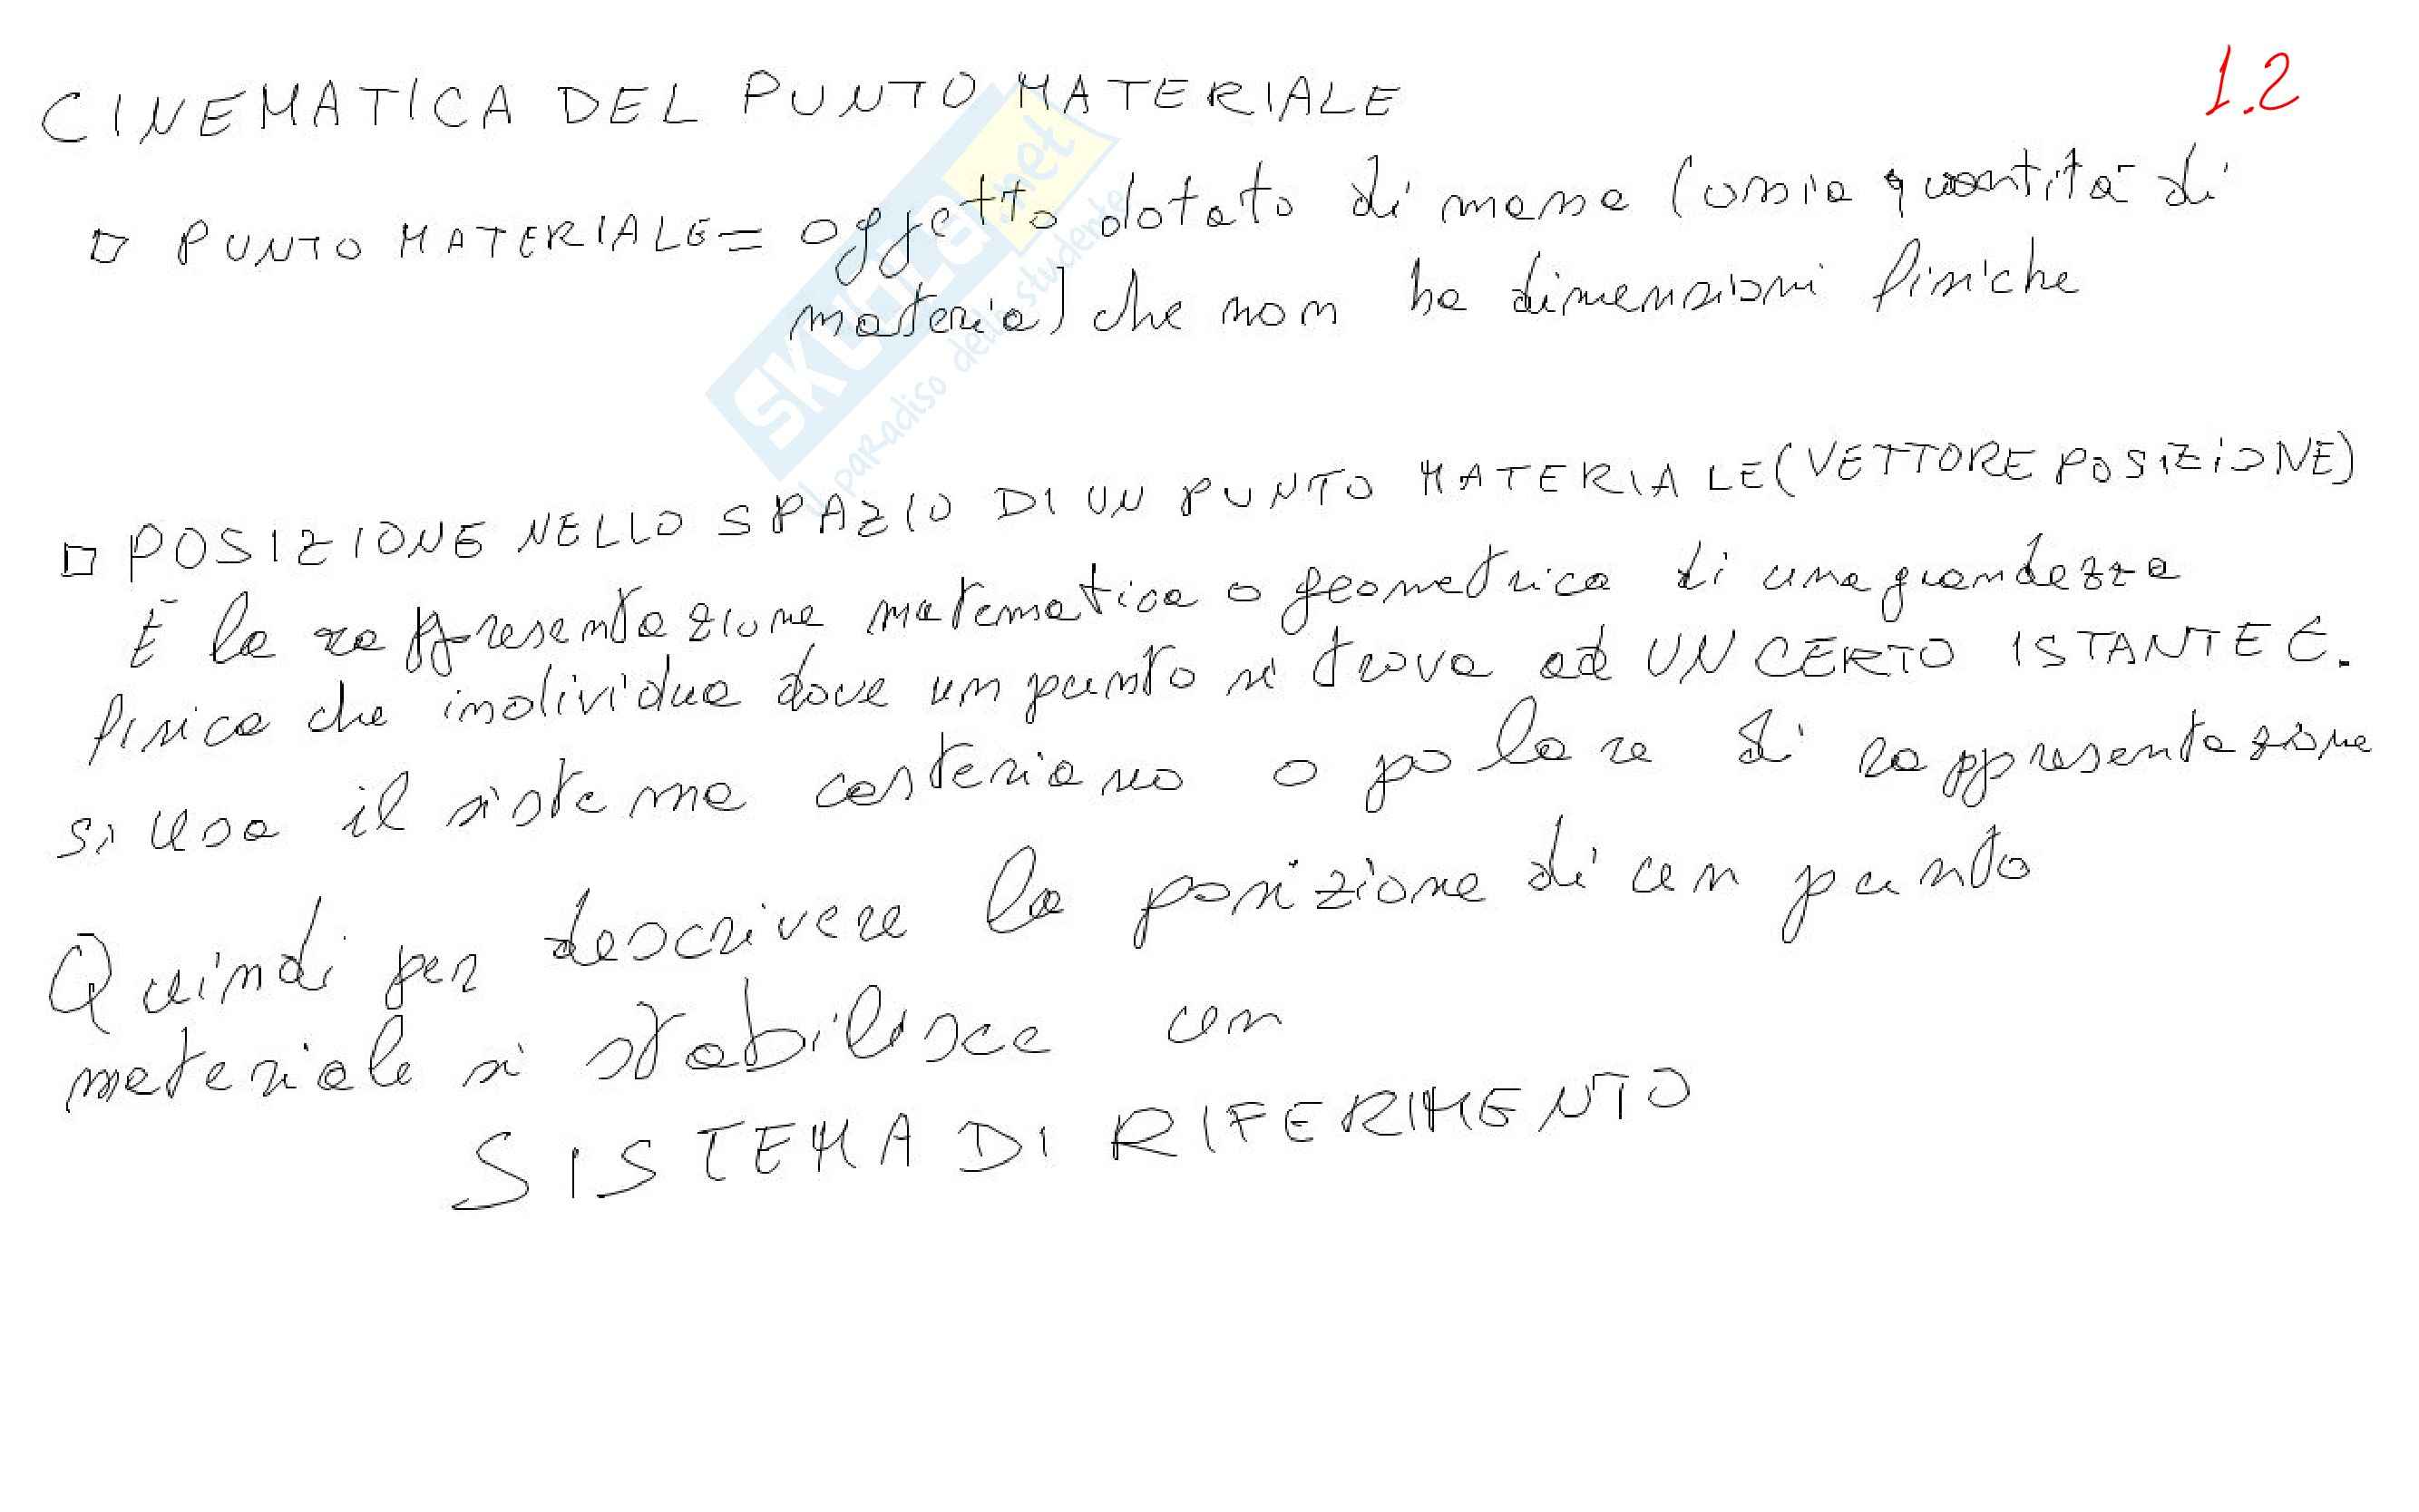 1.2
CINEMATICA DEL PUNTO MATERIALE
PUNTO MATERIALE = oggetto dotato di massa (ossia quantità di
materia) che non ha dimensioni fisiche
SKUOLA.net
il paradiso dello studente
POSIZIONE NELLO SPAZIO DI UN PUNTO MATERIALE (VETTORE POSIZIONE)
È la rappresentazione matematica o geometrica di una grandezza
fisica che individua dove un punto si trova ad UN CERTO ISTANTE t.
si usa il sistema cartesiano o polare di rappresentazione
Quindi per descrivere la posizione di un punto
materiale si stabilisce un
SISTEMA DI RIFERIMENTO